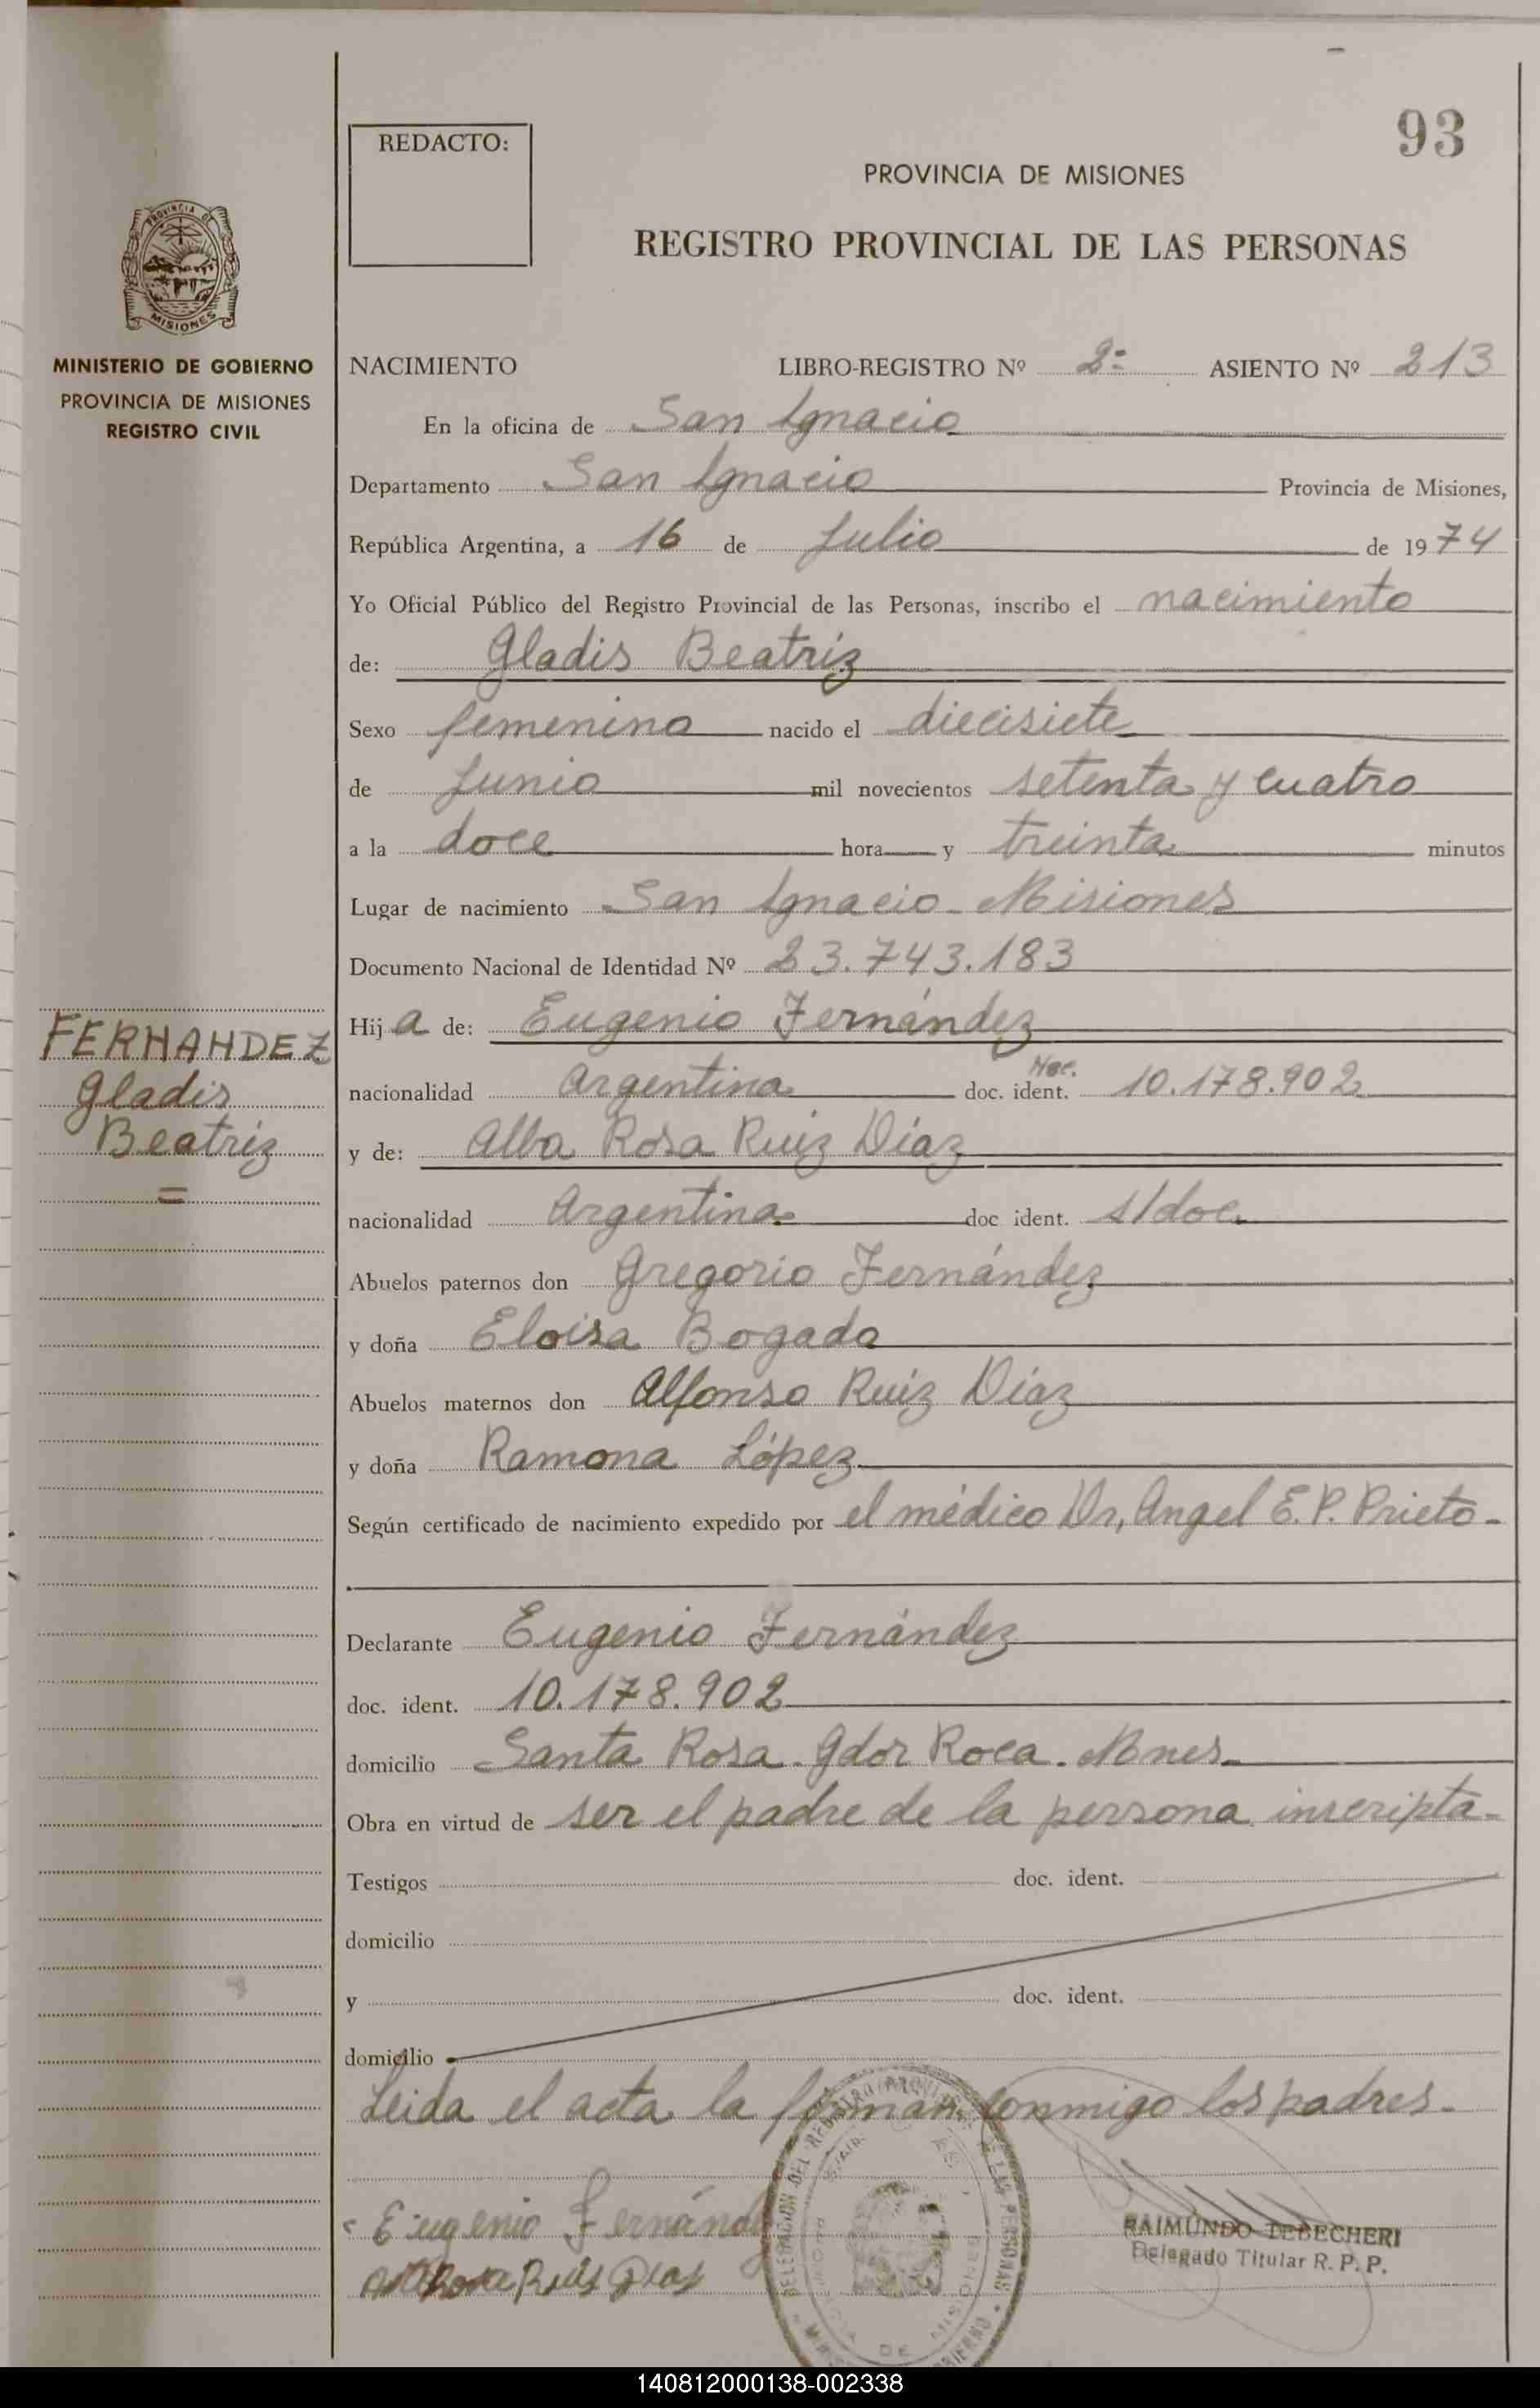 93
REDACTO:
PROVINCIA DE MISIONES
REGISTRO PROVINCIAL DE LAS PERSONAS
PROVINCIA DE
MISIONES
MINISTERIO DE GOBIERNO
PROVINCIA DE MISIONES
REGISTRO CIVIL
NACIMIENTO LIBRO-REGISTRO Nº 2º ASIENTO Nº 213
En la oficina de San Ignacio
Departamento San Ignacio Provincia de Misiones,
República Argentina, a 16 de Julio de 1974
Yo Oficial Público del Registro Provincial de las Personas, inscribo el nacimiento
de: Gladis Beatriz
Sexo femenino nacido el diecisiete
de Junio mil novecientos setenta y cuatro
a la doce hora y treinta minutos
Lugar de nacimiento San Ignacio - Misiones
Documento Nacional de Identidad Nº 23.743.183
FERNANDEZ
Gladis
Beatriz
Hija de: Eugenio Fernández
nacionalidad Argentina doc. ident. 10.178.902
y de: Alba Rosa Ruiz Díaz
nacionalidad Argentina doc ident. s/doc.
Abuelos paternos don Gregorio Fernández
y doña Eloisa Bogado
Abuelos maternos don Alfonso Ruiz Díaz
y doña Ramona López
Según certificado de nacimiento expedido por el médico Dr, Angel E.P. Prieto-
Declarante Eugenio Fernández
doc. ident. 10.178.902
domicilio Santa Rosa. Gdor Roca. Mnes.
Obra en virtud de ser el padre de la persona inscripta-
Testigos doc. ident.
domicilio
y doc. ident.
domicilio
Leida el acta la firman conmigo los padres-
Eugenio Fernández
Rosa Ruis Dias
RAIMUNDO DEBECHERI
Delegado Titular R. P. P.
DELEGACION DEL REGISTRO PROVINCIAL DE LAS PERSONAS
DE MISIONES
140812000138-002338